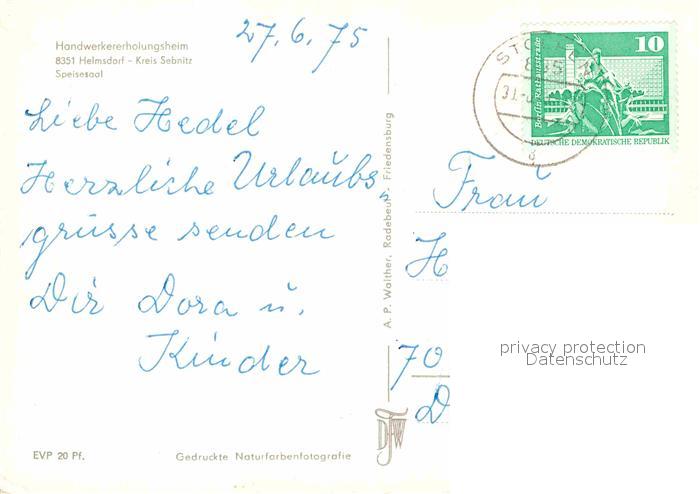 27.6.75
Handwerkererholungsheim
8351 Helmsdorf – Kreis Sebnitz
Speisesaal
Liebe Hedel
Herzliche Urlaubs-
grüsse senden
Dir Dora u.
Kinder
EVP 20 Pf.
Gedruckte Naturfarbenfotografie
A. P. Walther, Radebeul-Friedensburg
10
Berlin, Rathausstraße
DEUTSCHE DEMOKRATISCHE REPUBLIK
Frau
H
70
D
privacy protection
Datenschutz